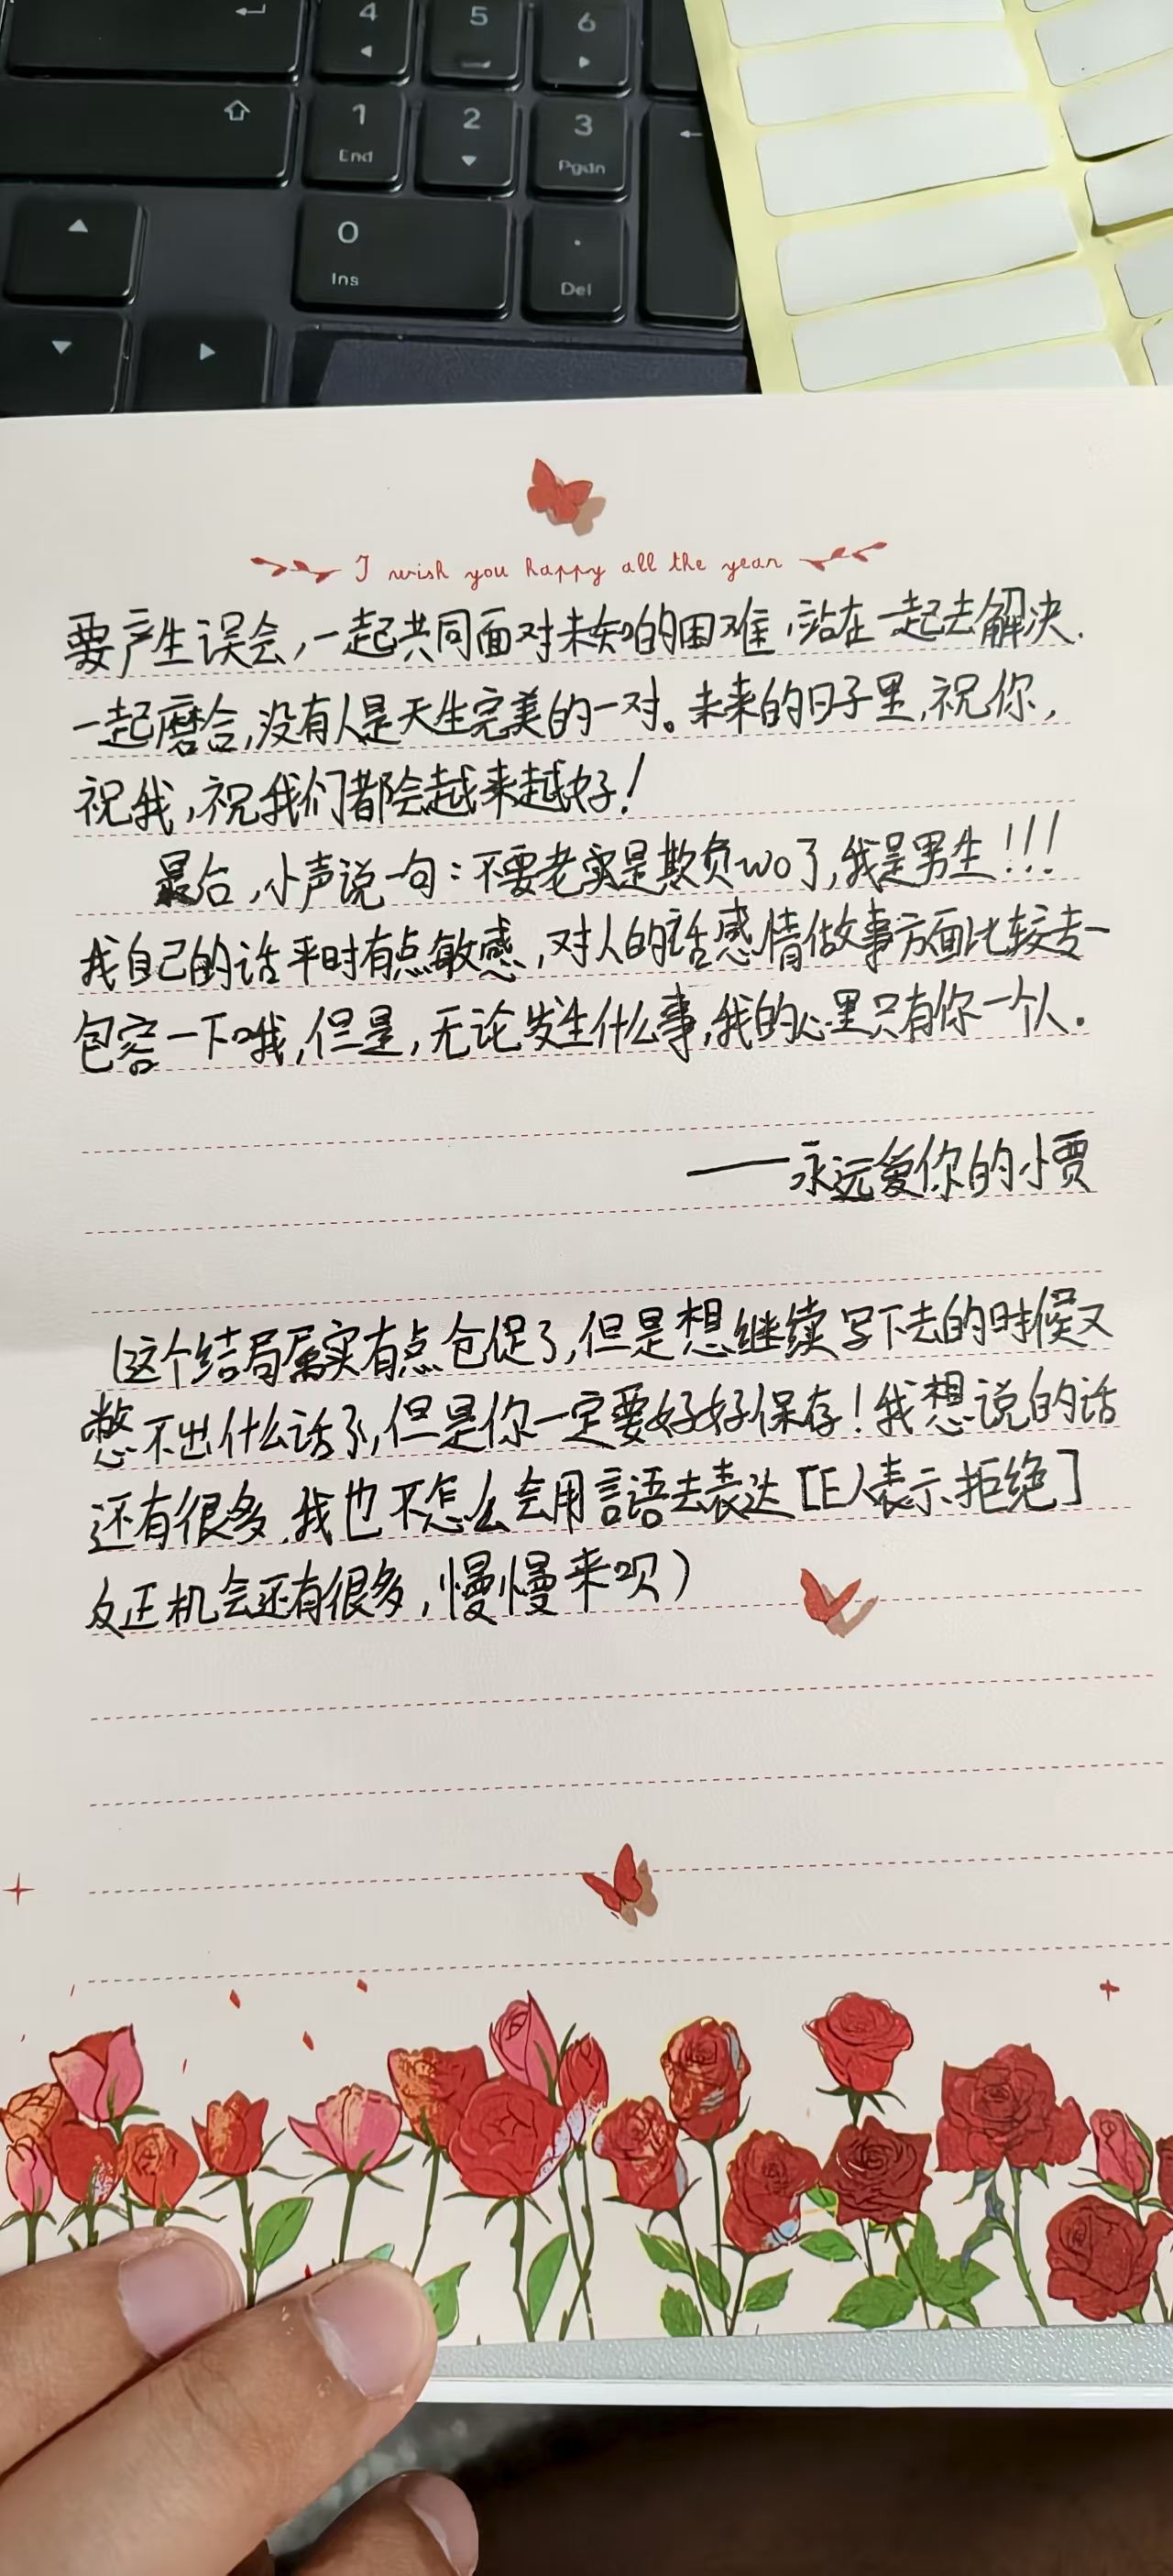 4
5
6
1
End
2
3
Pgdn
0
Ins
.
Del
I wish you happy all the year
要产生误会,一起共同面对未知的困难,站在一起去解决.
一起磨合,没有人是天生完美的一对。未来的日子里,祝你,
祝我,祝我们都会越来越好!
最后,小声说一句:不要老实是欺负wo了,我是男生!!!
我自己的话平时有点敏感,对人的话感情做事方面比较专一
包容一下哦,但是,无论发生什么事,我的心里只有你一个人.
——永远爱你的小贾
(这个结局属实有点仓促了,但是想继续写下去的时候又
憋不出什么话了,但是你一定要好好保存!我想说的话
还有很多.我也不怎么会用言語去表达[E人表示拒绝]
反正机会还有很多,慢慢来呗)